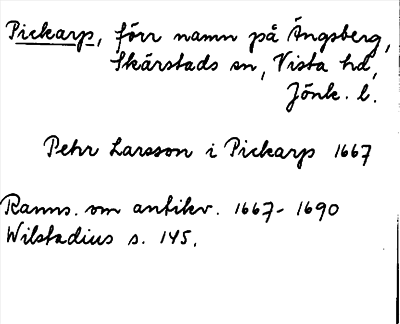 Pickarp, förr namn på Ängsberg,
Skärstads sn, Vista hd,
Jönk. l.
Pehr Larsson i Pickarp 1667
Ranns. om antikv. 1667-1690
Wilstadius s. 145.